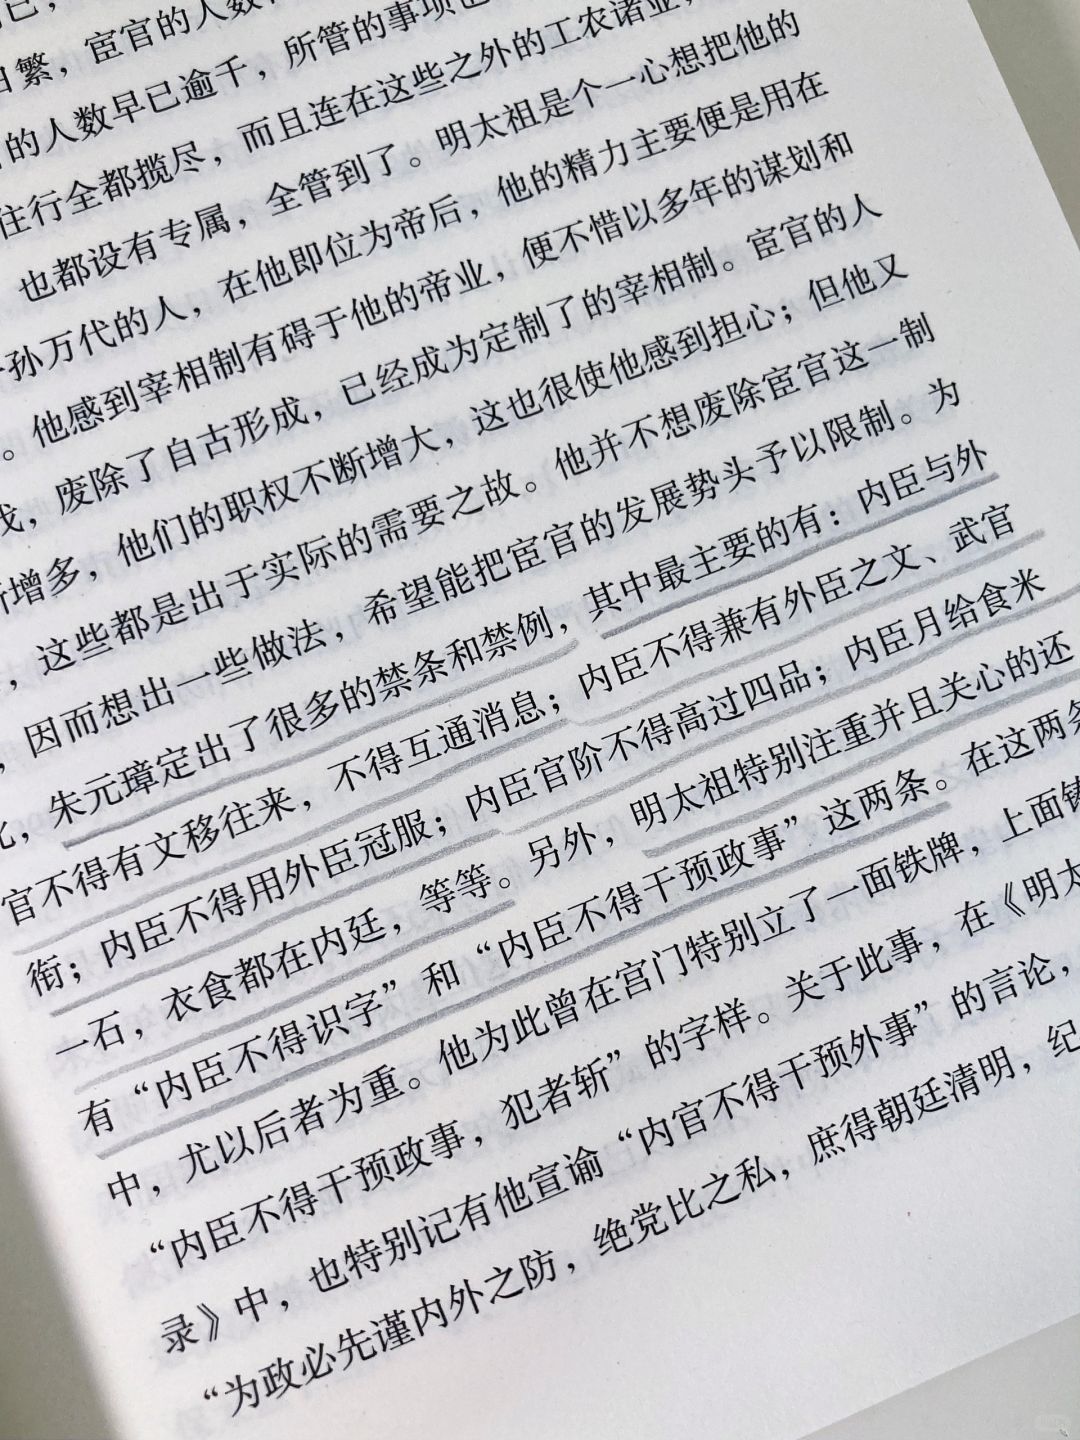 日繁，宦官的人数
的人数早已逾千，所管的事项也
住行全都揽尽，而且连在这些之外的工农诸业，
也都设有专属，全管到了。明太祖是个一心想把他的
孙万代的人，在他即位为帝后，他的精力主要便是用在
。他感到宰相制有碍于他的帝业，便不惜以多年的谋划和
，废除了自古形成，已经成为定制了的宰相制。宦官的人
断增多，他们的职权不断增大，这也很使他感到担心；但他又
，这些都是出于实际的需要之故。他并不想废除宦官这一制
，因而想出一些做法，希望能把宦官的发展势头予以限制。为
此，朱元璋定出了很多的禁条和禁例，其中最主要的有：内臣与外
官不得有文移往来，不得互通消息；内臣不得兼有外臣之文、武官
衔；内臣不得用外臣冠服；内臣官阶不得高过四品；内臣月给食米
一石，衣食都在内廷，等等。另外，明太祖特别注重并且关心的还
有“内臣不得识字”和“内臣不得干预政事”这两条。在这两条
中，尤以后者为重。他为此曾在宫门特别立了一面铁牌，上面铸
“内臣不得干预政事，犯者斩”的字样。关于此事，在《明太
录》中，也特别记有他宣谕“内官不得干预外事”的言论，
“为政必先谨内外之防，绝党比之私，庶得朝廷清明，纪